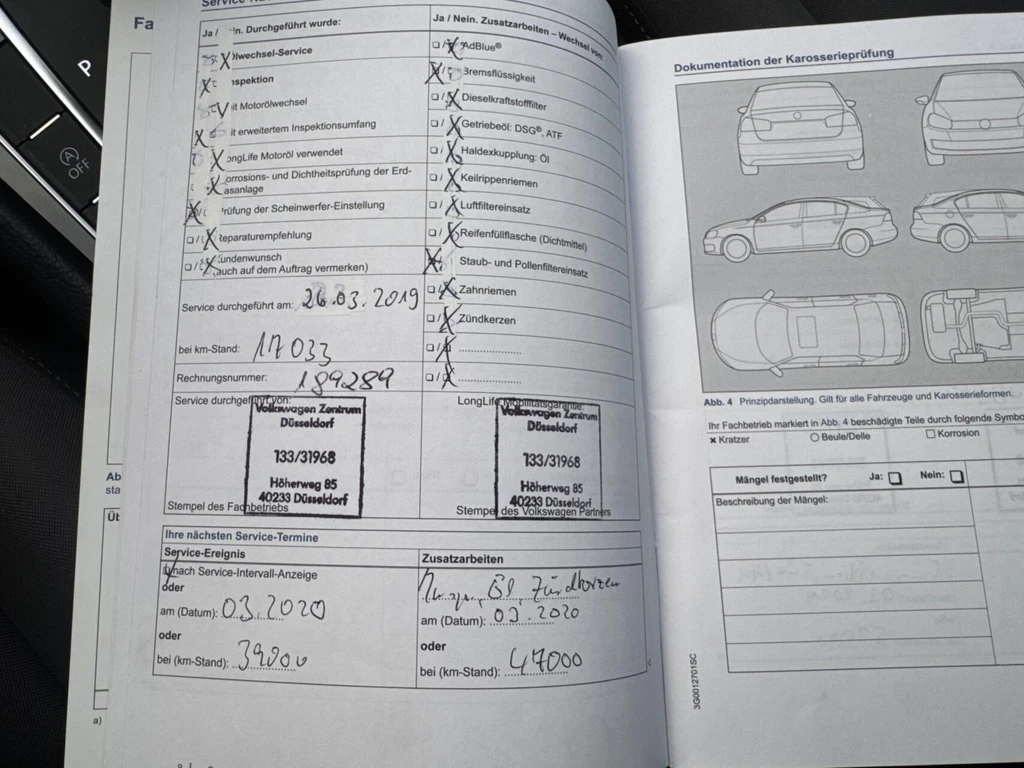 Fa
P
A
OFF
Ja / Nein. Durchgeführt wurde:
Ölwechsel-Service
Inspektion
mit Motorölwechsel
mit erweitertem Inspektionsumfang
LongLife Motoröl verwendet
Korrosions- und Dichtheitsprüfung der Erd-
gasanlage
Prüfung der Scheinwerfer-Einstellung
Reparaturempfehlung
Kundenwunsch
(auch auf dem Auftrag vermerken)
Service durchgeführt am: 26.03.2019
bei km-Stand: 17 033
Rechnungsnummer: 189289
Service durchgeführt von:
Volkswagen Zentrum
Düsseldorf
133/31968
Höherweg 85
40233 Düsseldorf
Stempel des Fachbetriebs
Ja / Nein. Zusatzarbeiten – Wechsel von:
AdBlue®
Bremsflüssigkeit
Dieselkraftstofffilter
Getriebeöl: DSG®, ATF
Haldexkupplung: Öl
Keilrippenriemen
Luftfiltereinsatz
Reifenfüllflasche (Dichtmittel)
Staub- und Pollenfiltereinsatz
Zahnriemen
Zündkerzen
LongLife Mobilitätsgarantie:
Volkswagen Zentrum
Düsseldorf
133/31968
Höherweg 85
40233 Düsseldorf
Stempel des Volkswagen Partners
Ihre nächsten Service-Termine
Service-Ereignis
nach Service-Intervall-Anzeige
oder
am (Datum): 03.2020
oder
bei (km-Stand): 39000
Zusatzarbeiten
Öl, Zündkerzen
am (Datum): 03.2020
oder
bei (km-Stand): 47000
Ab
sta
Üt
a)
Dokumentation der Karosserieprüfung
Abb. 4 Prinzipdarstellung. Gilt für alle Fahrzeuge und Karosserieformen.
Ihr Fachbetrieb markiert in Abb. 4 beschädigte Teile durch folgende Symbo
× Kratzer ○ Beule/Delle □ Korrosion
Mängel festgestellt? Ja: Nein:
Beschreibung der Mängel:
3G0012701SC